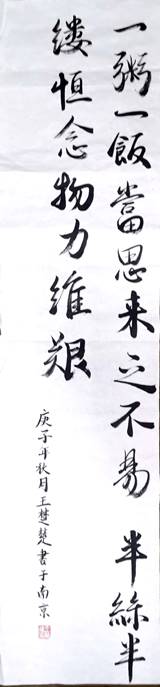 一粥一飯當思来之不易 半絲半
缕恒念物力維艱
庚子年秋月王楚楚書于南京